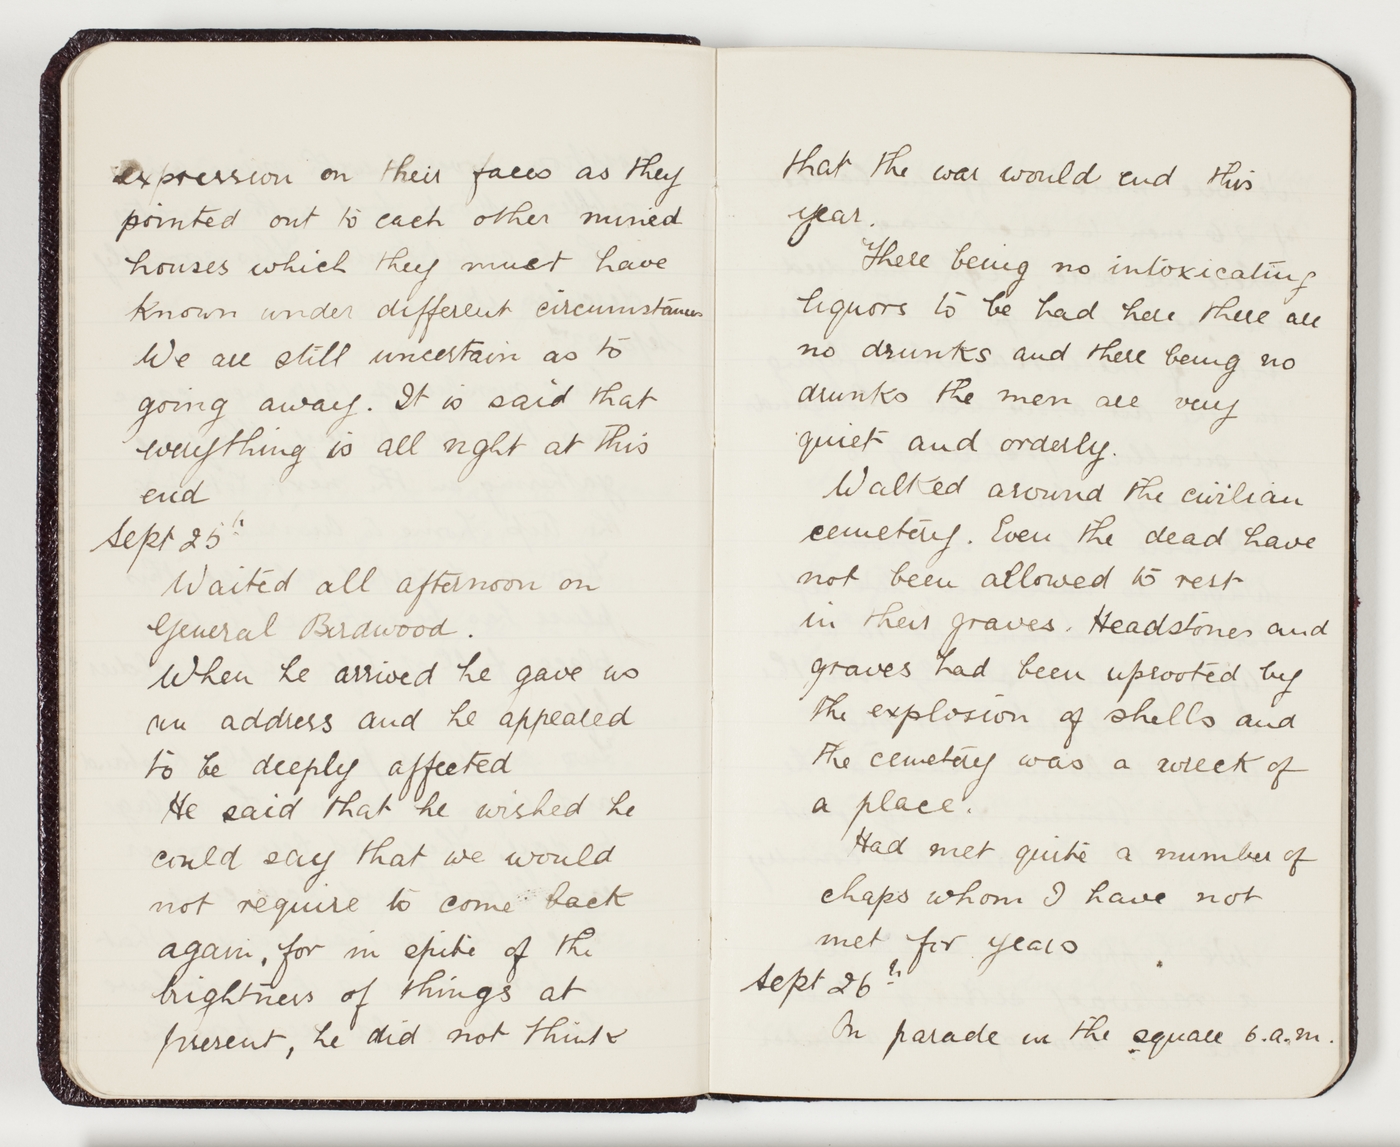 expression on their faces as they
pointed out to each other ruined
houses which they must have
known under different circumstances
We are still uncertain as to
going away. It is said that
everything is all right at this
end
Sept 25th
Waited all afternoon on
General Birdwood.
When he arrived he gave us
an address and he appeared
to be deeply affected
He said that he wished he
could say that we would
not require to come back
again, for in spite of the
brightness of things at
present, he did not think
that the war would end this
year.
There being no intoxicating
liquors to be had here there are
no drunks and there being no
drunks the men are very
quiet and orderly.
Walked around the civilian
cemetery. Even the dead have
not been allowed to rest
in their graves. Headstones and
graves had been uprooted by
the explosion of shells and
the cemetery was a wreck of
a place.
Had met quite a number of
chaps whom I have not
met for years
Sept 26th
On parade in the square 6.a.m.